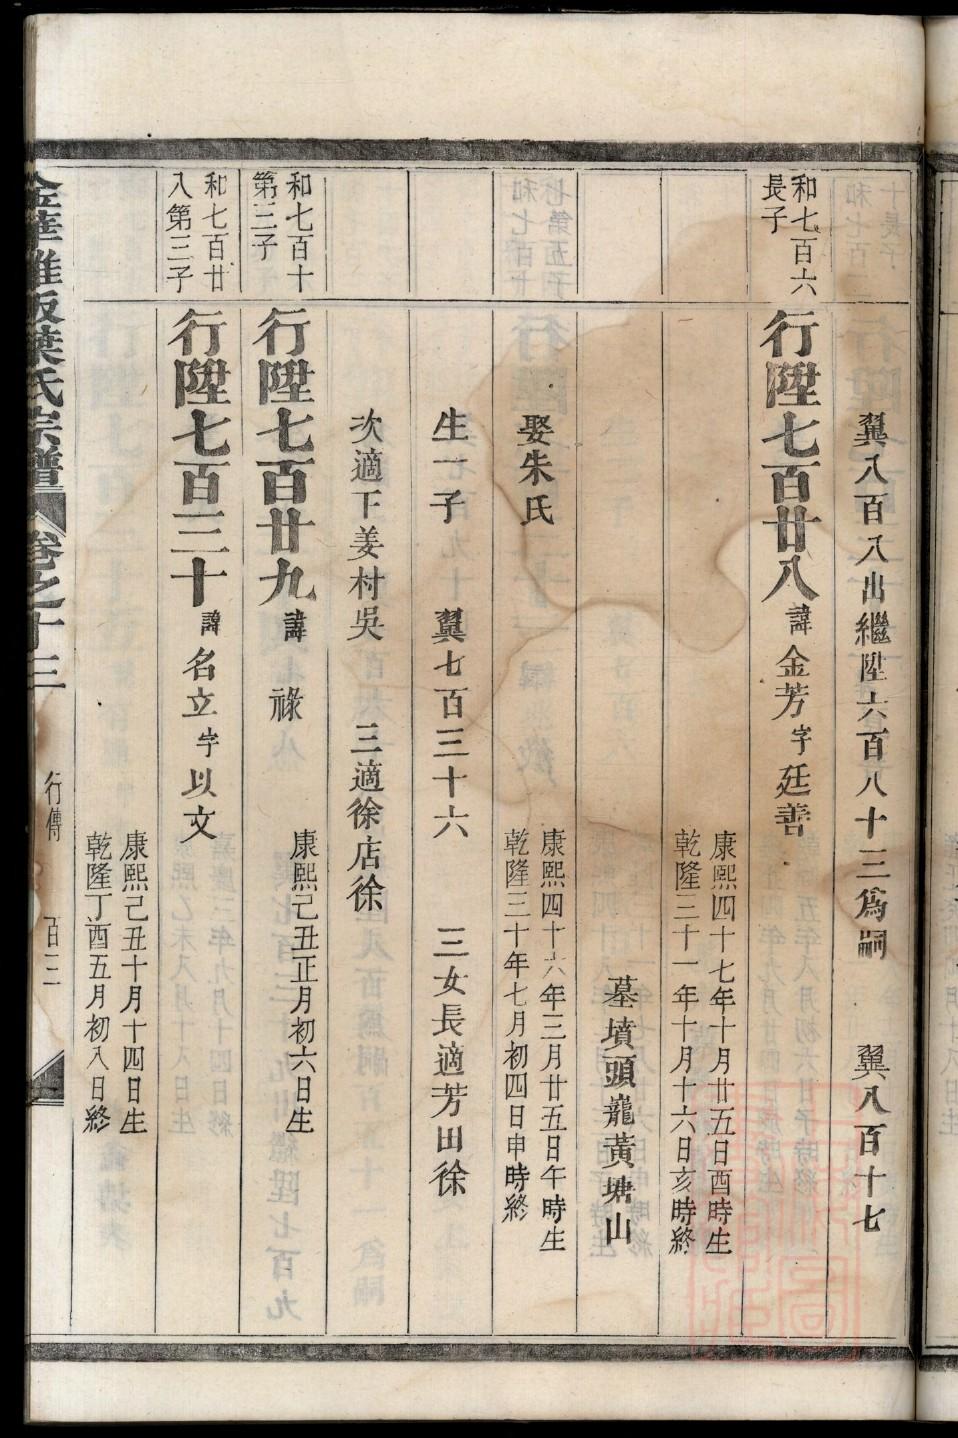 翼八百八出繼陞六百八十三爲嗣　翼八百十七
和七百六
長子
行陞七百廿八 諱 金芳 字 廷善
康熙四十七年十月廿五日酉時生
乾隆三十一年十月十六日亥時終
墓墳頭巃黃塘山
娶朱氏
康熙四十六年三月廿五日午時生
乾隆三十年七月初四日申時終
生一子　翼七百三十六　三女長適芳田徐
次適下姜村吳　三適徐店徐
和七百十
第三子
行陞七百廿九 諱 祿
康熙己丑正月初六日生
和七百廿
八第三子
行陞七百三十 諱 名立 字 以文
康熙己丑十月十四日生
乾隆丁酉五月初八日終
金華雅畈葉氏宗譜 卷之十三 行傳 百三